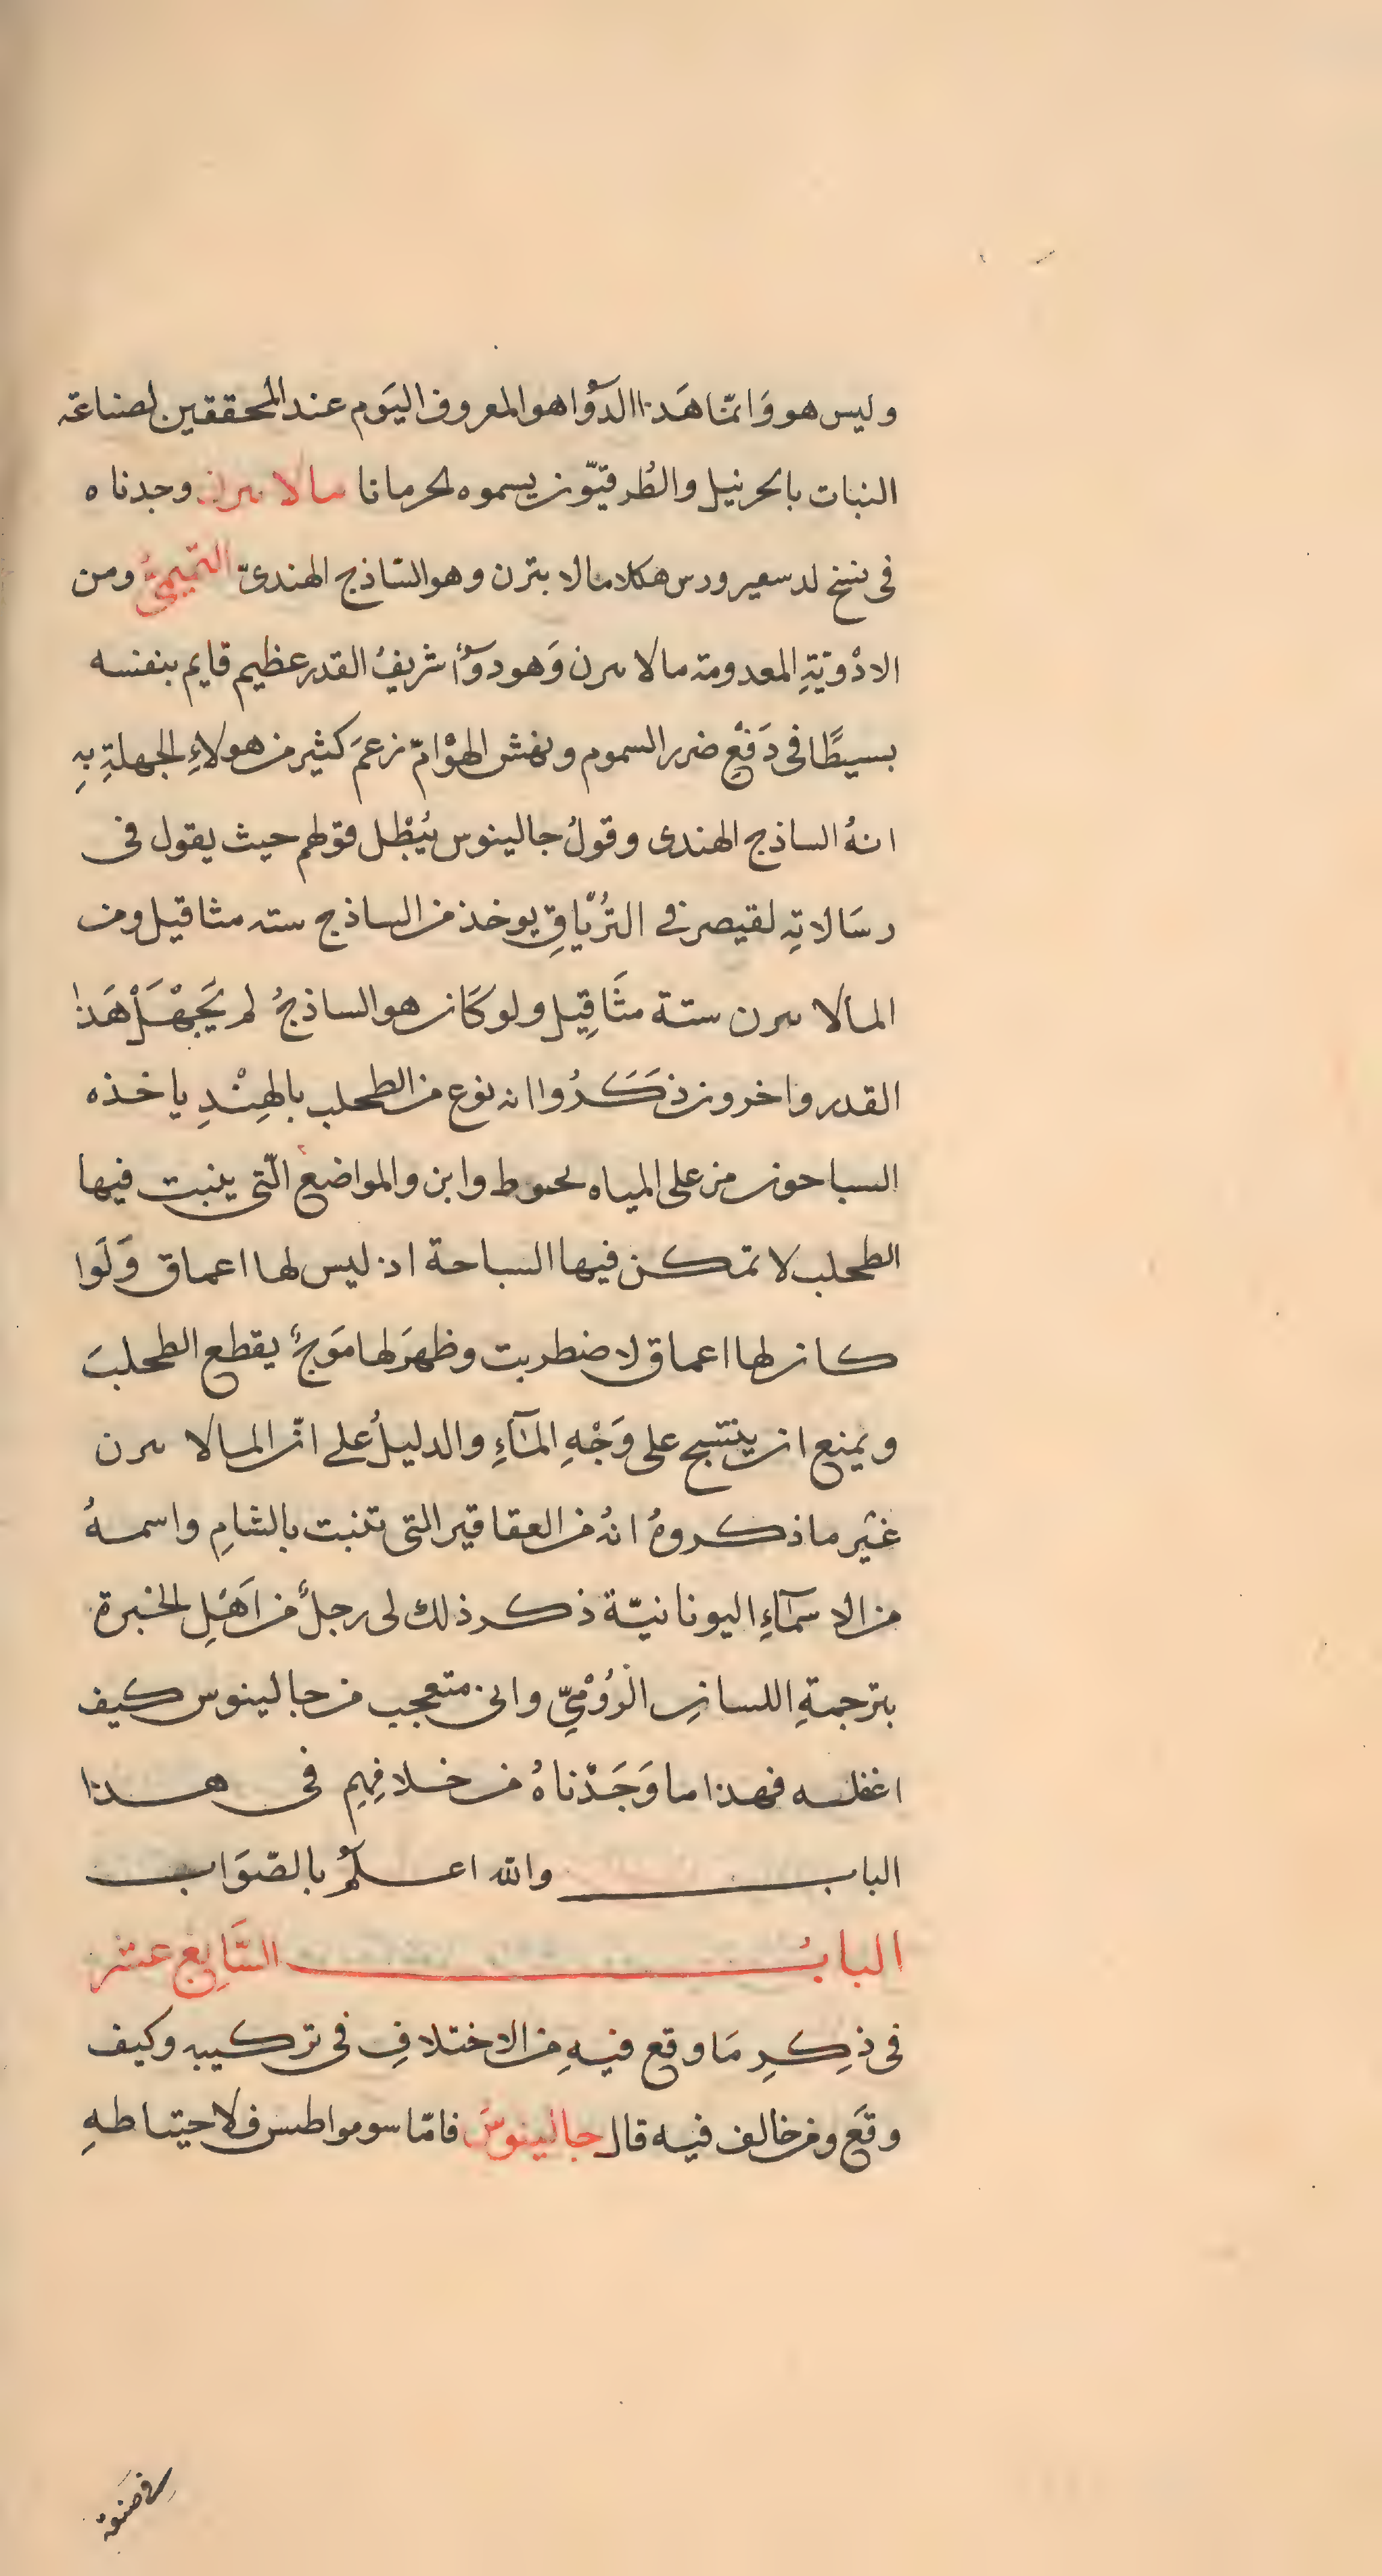 وليس هو وَانمّا هَذا الدوَآ هو المعروف اليَوم عند المحققين لصناعة
النبات بالحرنيل والطُرقيّون يسموه لحرمانا مالا ىىرن وجدناه
فى نسخ لدسعيرورس هكذا مالا بترن وهو السّاذج الهندىّ التّميمىُّ ومن
الادْوِيَةِ المعدومة مالا ىىرن وَهو دوَآٌ شريفُ القدر عظيم قايم بنفسه
بسيطًا فى دَفْعِ ضرر السموم ونهش الهوْامّ زعمَ كثير من هولاءِ الجهلةِ بِهِ
انهُ الساذج الهندى وقولُ جالينوس يُبْطِل قولهم حيث يقول فى
رسَالاتِهِ لقيصر فى التُرْيَاقِ يوخذ من الساذج سته مثاقيل ومن
المالا ىىرن ستة مثَاقِيل ولو كَان هو الساذجُ لم يَجْهَلْ هَذا
القدر واخرون ذَكَرُوا انه نوع من الطحلب بالهِنْدِ ياخذه
السباحون من على المياه لحىوط وابن والمواضع الّتى ينبت فيها
الطحلب لا تمكن فيها السباحة اذ ليس لها اعماق وَلَوا
كان لها اعماق لاضطربت وظهرَ لها مَوجٌ يقطع الطحلبَ
ويمنع ان ينتسج على وَجْهِ المآءِ والدليلُ على انّ المالا ىىرن
غيْر ما ذكروهُ انهُ من العقاقير التى تنبت بالشامِ واسمهُ
من الاسمآءِ اليونانيّة ذكر ذلك لى رجلٌ من اَهْلِ الخبرة
بترجمةِ اللسانِ الرُوْمِىِّ وانى متعجب من جالينوس كيف
اغفله فهذا ما وَجَدْناهُ من خلافِهِم فى هذا
الباب والله اعلمُ بالصّوَاب
البابُ السَّابِع عشر
فى ذِكرِ مَا وقع فيهِ من الاختلافِ فى تركيبه وكيف
وقَع ومن خالف فيه قال جالينوسَ فامّا سومواطس فلاحتياطهِ